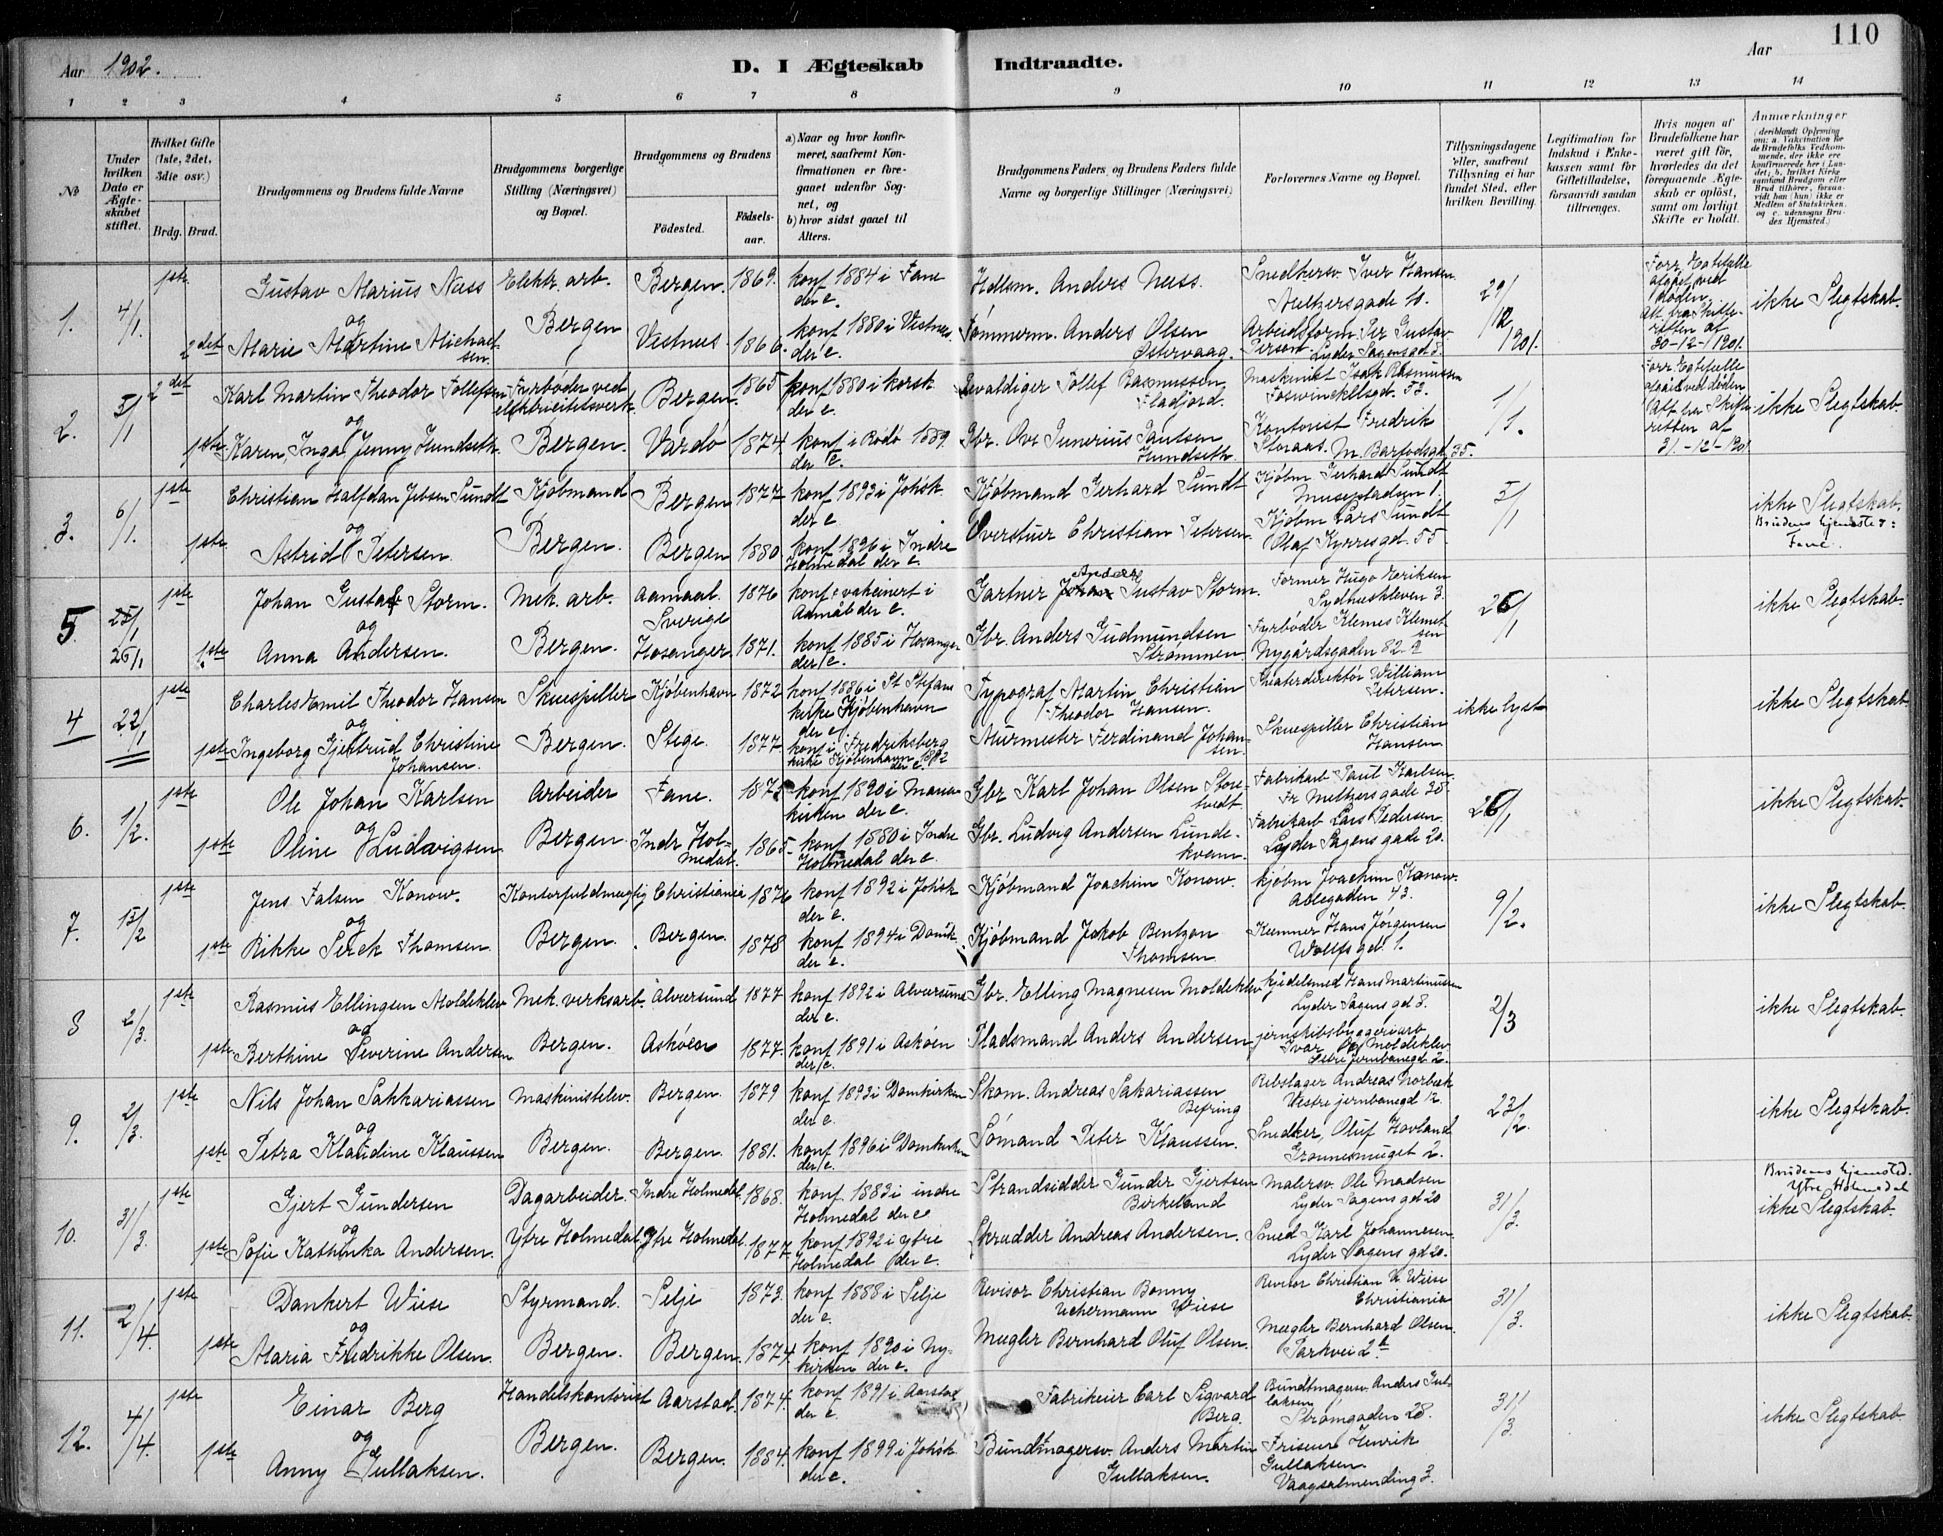 Aar 1902.
D. I Ægteskab Indtraadte.
Aar 110
1 2 3 4 5 6 7 8 9 10 11 12 13 14
№
Under hvilken Dato er Ægteskabet stiftet.
Hvilket Gifte (1ste, 2det, 3die osv.)
Brdg. Brud.
Brudgommens og Brudens fulde Navne
Brudgommens borgerlige Stilling (Næringsvei) og Bopæl.
Brudgommens og Brudens
Födested. Födselsaar.
a) Naar og hvor konfirmeret, saafremt Konfirmationen er foregaaet udenfor Sognet, og
b) hvor sidst gaaet til Alters.
Brudgommens Faders, og Brudens Faders fulde Navne og borgerlige Stillinger (Næringsvei)
Forlovernes Navne og Bopæl.
Tillysningsdagene eller, saafremt Tillysning ei har fundet Sted, efter hvilken Bevilling.
Legitimation for Indskud i Enkekassen samt for Giftetilladelse, forsaavidt saadan tiltrænges.
Hvis nogen af Brudefolkene har været gift för, hvorledes da det foregaaende Ægteskab er oplöst, samt om lovligt Skifte er holdt.
Anmærkninger (deriblandt Oplysning om: a. Vakcination for de Brudefolks Vedkommende, der ikke ere konfirmerede her i Landet; b. hvilket Kirkesamfund Brudgom eller Brud tilhörer, forsaavidt han (hun) ikke er Medlem af Statskirken, og c. udensogns Brudes Hjemsted.)
1. 4/1. 1ste Gustav Marius Næss Elektr. arb. Bergen. 1869. konf 1884 i Fane der e. Hdlsm. Anders Næss. Snedkersv. Iver Hansen Meltzersgade 10. 29/12 1901. Forr. Egtefælle afgået ved døden. Att. fra Skifteretten af 30-12-1901. ikke Slegtskab.
og
2det Marie Martine Michaelsen. Bergen Vestnes 1866. konf 1880 i Vestnes. der e. Tømmerm. Anders Olsen Østervaag. Arbeidsform. Per Gustav Person Lyder Sagensgd 8.
2. 5/1 2det Karl Martin Theodor Tollefsen Fyrbøder ved elektricitetsverk Bergen. 1865 konf 1880 i korsk der e. Gevaldiger Tollef Rasmussen Fladfjord. Maskinist Isak Rasmussen Foswinckelsgd. 52. 1/1. Forr Egtefelle afgået ved døden Att fra Skifteretten af 31-12-1901 ikke Slegtskab.
og
1ste Karen Inga Jenny Hundseth. Bergen. Vardø 1874. konf i Rödö 1889. der e. Gbr. Ove Junerius Jantsen Hundseth. Kontorist Fredrik Storaas. M. Barfodsgd 35.
3. 6/1. 1ste Christian Halfdan Jebsen Sundt Kjøbmand Bergen 1877 konf 1892 i Johsk der e. Kjøbmand Gerhard Sundt Kjøbm Gerhard Sundt Musepladsen 1. 5/1 ikke Slegtskab. Brudens hjemsted: Fane.
og
1ste Astrid Petersen. Bergen. Bergen 1880. konf 1896 i Indre Holmedal der e. Overstuer Christian Petersen. Kjøbm Lars Sundt Olaf Kyrresgd. 55.
5. 25/1 26/1 1ste Johan Gustaf Storm. Mek. arb. Aamaal. Sverige 1876 konf & vakcinert i Aamål der e. Gartner Johan Anders Gustav Storm. Former Hugo Eeriksen Sydneskleven 3. 26/1 ikke Slegtskab.
og
1ste Anna Andersen. Bergen. Hosanger. 1871. konf 1885 i Hosanger der e. Gbr. Anders Gudmundsen Strømmen. Fyrbøder Klemes Klemetsen Nygårdsgaden 82 a
4 22/1 1ste Charles Emil Theodor Hansen Skuespiller Kjöbenhavn 1872 konf 1886 i St Stefans kirke Kjöbenhavn der e. Typograf Martin Christian Theodor Hansen. Theaterdirektör William Petersen. ikke lyst ikke Slegtskab.
og
1ste Ingeborg Gjertrud Christine Johansen. Bergen. Stege. 1877 konf i Fredriksberg kirke Kjöbenhavn 1892 der e. Murmester Ferdinand Johansen. Skuespiller Christian Hansen
6. 1/2. 1ste Ole Johan Karlsen Arbeider Fane. 1875 konf 1890 i Mariakirken der e. Gbr Karl Johan Olsen Storetvedt. Fabrikarb Paul Karlsen. Fr Meltzersgade 35. 26/1 ikke Slegtskab.
og
1ste Oline Ludvigsen Bergen Indr Holmedal. 1865. konf 1880 i Indre Holmedal der e. Gbr. Ludvig Andersen Lundekvam. Fabrikarb Lars Pedersen. Lyder Sagens gade 20.
7. 15/2 1ste Jens Falsen Konow. Kontorfuldmægtig Christiania 1876 konf 1892 i Johsk der e. Kjöbmand Joachim Konow. kjöbm Joachim Konow. Allegaden 43. 9/2. ikke Slegtskab.
og
1ste Rikke Serck Thomsen. Bergen. Bergen. 1878 konf 1894 i Domk. der e. Kjöbmand Jakob Bentzon Thomsen Kemner Hans Jörgensen Wolffs gd. 1.
8 2/3. 1ste Rasmus Ellingsen Moldeklev Mek. verksarb. Alversund 1877 konf 1892 i Alversund der e. Gbr. Elling Magnesen Moldeklev kjedelsmed Hans Martinussen Lyder Sagens gd 8. 2/3 ikke Slegtskab.
og
1ste Berthine Severine Andersen Bergen. Asköen 1877. konf 1891 i Asköen der e. Pladsmand Anders Andersen jernskibsbyggeriarb Ivar Moldeklev Vestre Jernbanegd 2.
9. 2/3. 1ste Nils Johan Sakkariassen Maskinistelev. Bergen. 1879 konf 1893 i Domkirken der e. Skom. Andreas Sakariassen Befring Rebslager Andreas Norbeck Vestre jernbanegd 12. 23/2. ikke Slegtskab.
og
1ste Petra Klaudine Klaussen Bergen. Bergen. 1881. konf 1896 i Domkirken der e. Sømand Peter Klaussen. Snedker Oluf Hovland Grønnesmuget 2.
10. 31/3. 1ste Gjert Gundersen Dagarbeider. Indre Holmedal. 1868. konf 1883 i indre Holmedal der e Strandsidder Gunder Gjertsen Birkeland Malersv. Ole Madsen Lyder Sagens gd 20 31/3. Brudens hjemsted. Ytre Holmedal ikke Slegtskab.
og
1ste Sofie Kathinka Andersen. Ytre Holmedal Ytre Holmedal. 1877. konf 1892 i ytre Holmedal der e. Skrædder Andreas Andersen. Smed Karl Johannesen. Lyder Sagens gd 20.
11. 2/4. 1ste Dankert Wiese Styrmand. Selje 1873. konf 1888 i Selje der e. Revisor Christian Bonny Uchermann Wiese Revisor Christian U Wiese Christiania 31/3. ikke Slegtskab.
og
1ste Maria Fredrikke Olsen. Bergen. Bergen. 1874. konf 1890 i Nykirken der e. Mægler Bernhard Oluf Olsen. Mægler Bernhard Olsen. Parkvei 2b
12. 4/4. 1ste Einar Berg Handelskontorist Aarstad. 1874. konf 1891 i Aarstad der e. Fabrikeier Carl Sigvard Berg. Bundtmagersv. Anders Gullaksen Strømgaden 28. 31/3. ikke Slegtskab.
og
1ste Anny Gullaksen. Bergen. Bergen. 1884. konf 1899 i Johsk der e. Bundtmagersv. Anders Martin Gullaksen. Friseur Henrik Gullaksen. Vaagsalmending 3.